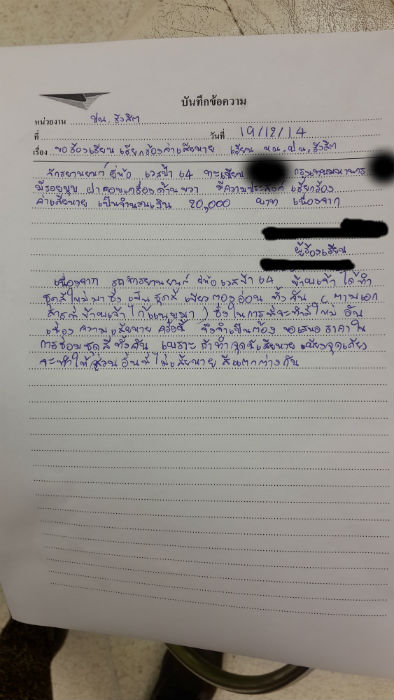 บันทึกข้อความ
หน่วยงาน ปน. รังสิต
ที่ วันที่ 19/12/14
เรื่อง ขอร้องเรียน เรียกร้องค่าเสียหาย เรียน หน. ปน. รังสิต
รถจักรยานยนต์ ยี่ห้อ เวสป้า 64 ทะเบียน กรุงเทพมหานคร
มีรอยบุบ ฝาครอบเครื่องด้านขวา มีความประสงค์ เรียกร้อง
ค่าเสียหาย เป็นจำนวนเงิน 20,000 บาท เนื่องจาก
ผู้ร้องเรียน
เนื่องจาก รถจักรยานยนต์ ยี่ห้อ เวสป้า 64 ข้าพเจ้า ได้ทำ
ชุดสีใหม่มา ซึ่ง เป็น ชุดสี เขียวตองอ่อน ทั้งคัน (ตามเอก
สารที่ ข้าพเจ้า ได้แนบมา) ซึ่งในการที่จะทำสีใหม่ อัน
เนื่อง ความเสียหาย ครั้งนี้ จึงจำเป็นต้อง ขอเสนอ ราคาใน
การซ่อมชุดสี ทั้งคัน เพราะ ถ้าทำจุดที่เสียหาย เพียงจุดเดียว
จะทำให้ส่วนอื่นที่ไม่เสียหาย สีแตกต่างกัน